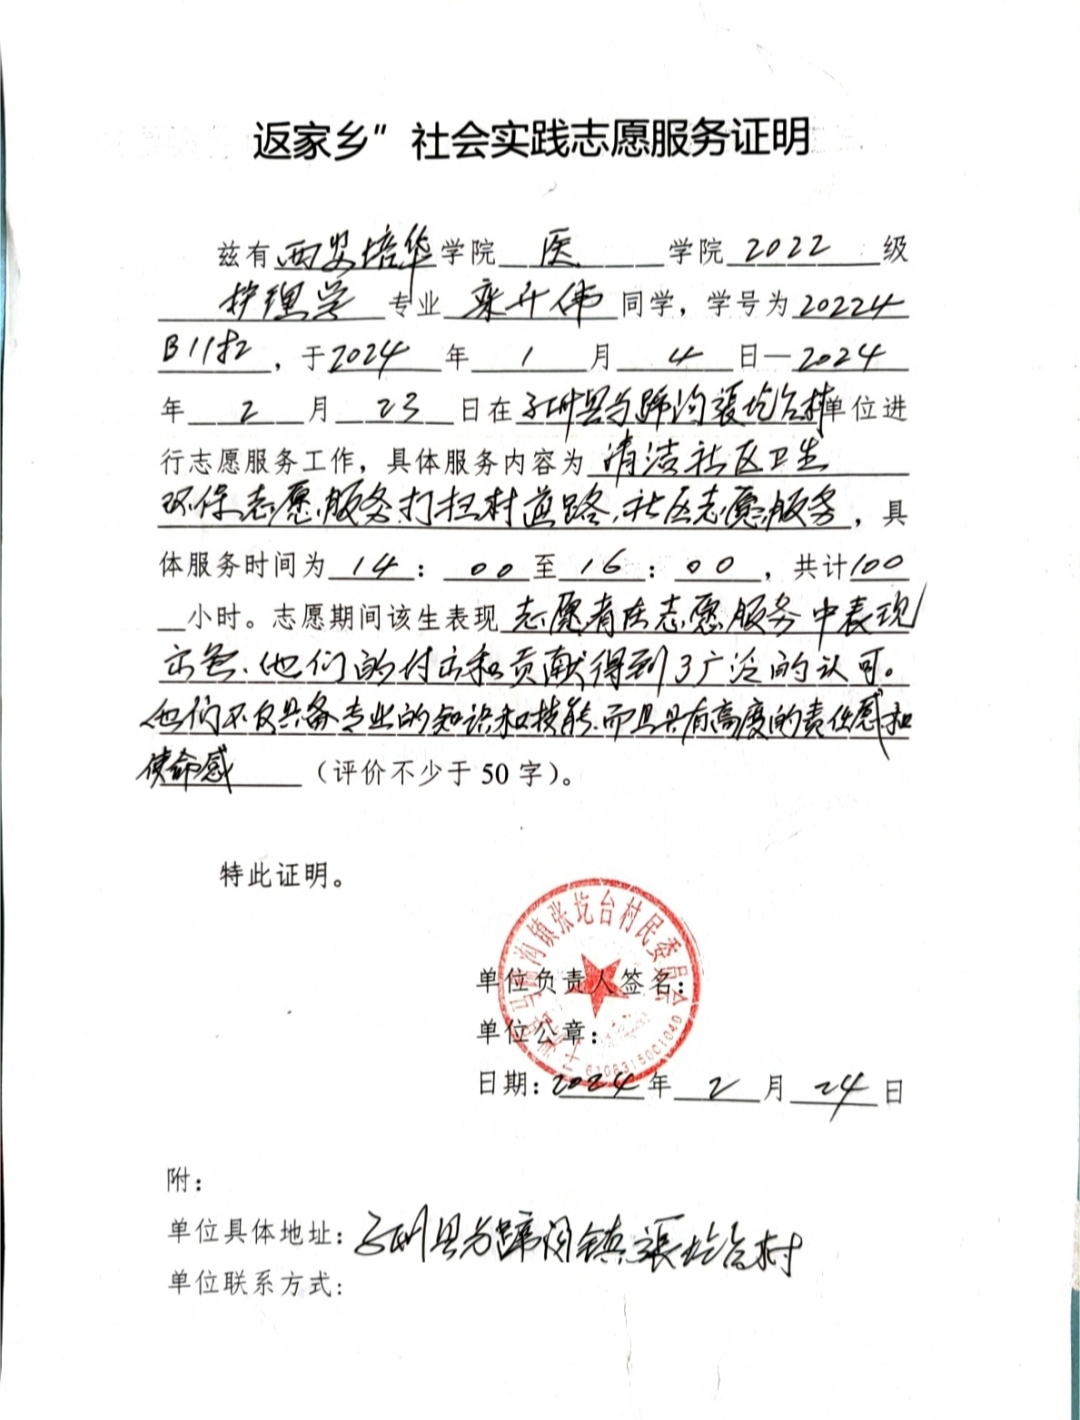 返家乡”社会实践志愿服务证明
兹有西安培华学院 医 学院 2022 级
护理学 专业 栾升伟 同学，学号为20224
B1182，于2024 年 1 月 4 日—2024
年 2 月 23 日在子洲县马蹄沟張圪台村单位进
行志愿服务工作，具体服务内容为 清洁社区卫生
环保志愿服务.打扫村道路.社区志愿服务，具
体服务时间为 14：00至16：00，共计100
小时。志愿期间该生表现 志愿者在志愿服务中表现
出色.他们的付出和贡献得到了广泛的认可。
他们不仅具备专业的知识和技能.而且具有高度的责任感和
使命感 （评价不少于50字）。
特此证明。
马蹄沟镇张圪台村民委员会
单位负责人签名：
单位公章：
6108315001040
日期：2024年 2 月 24 日
附：
单位具体地址：子洲县马蹄沟镇張圪台村
单位联系方式：